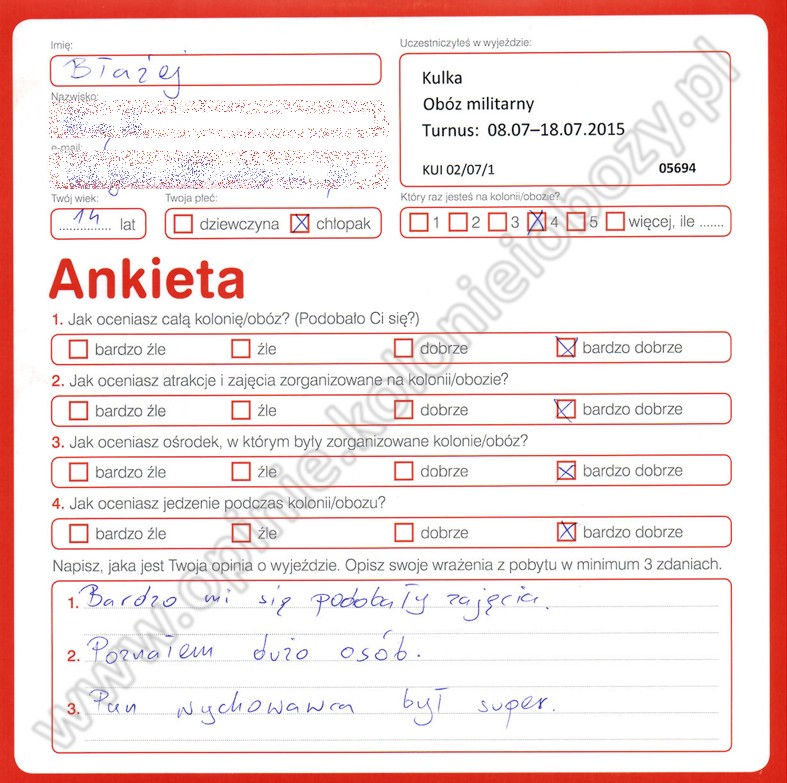 Imię:
Błażej
Uczestniczyłeś w wyjeździe:
Kulka
Obóz militarny
Turnus: 08.07–18.07.2015
KUI 02/07/1 05694
Nazwisko:
e-mail:
Twój wiek:
14 lat
Twoja płeć:
dziewczyna chłopak
Który raz jesteś na kolonii/obozie?
1 2 3 4 5 więcej, ile .......
Ankieta
1. Jak oceniasz całą kolonię/obóz? (Podobało Ci się?)
bardzo źle źle dobrze bardzo dobrze
2. Jak oceniasz atrakcje i zajęcia zorganizowane na kolonii/obozie?
bardzo źle źle dobrze bardzo dobrze
3. Jak oceniasz ośrodek, w którym były zorganizowane kolonie/obóz?
bardzo źle źle dobrze bardzo dobrze
4. Jak oceniasz jedzenie podczas kolonii/obozu?
bardzo źle źle dobrze bardzo dobrze
Napisz, jaka jest Twoja opinia o wyjeździe. Opisz swoje wrażenia z pobytu w minimum 3 zdaniach.
1. Bardzo mi się podobały zajęcia.
2. Poznałem dużo osób.
3. Pan wychowawca był super.
www.opinie.kolonieiobozy.pl